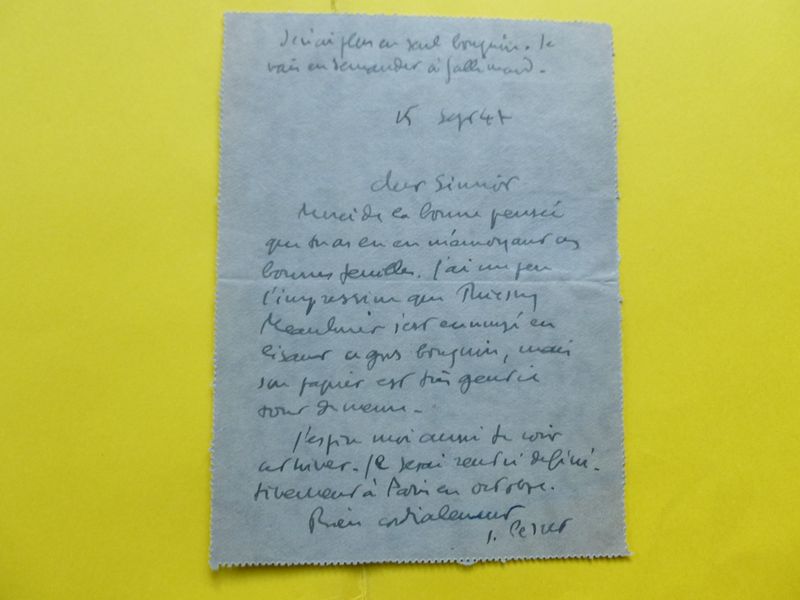 Je n'ai plus un seul bouquin. Je
vais en demander à Gallimard.
15 Sept 47
cher
Merci de la bonne pensée
que tu as eu en m'envoyant ces
bonnes feuilles. J'ai un peu
l'impression que Thierry
Maulnier s'est ennuyé en
lisant ce gros bouquin, mais
son papier est très gentil
tout de même.
J'espère moi aussi te voir
cet hiver. Je serai rentré défini-
tivement à Paris en octobre.
Bien cordialement
J.